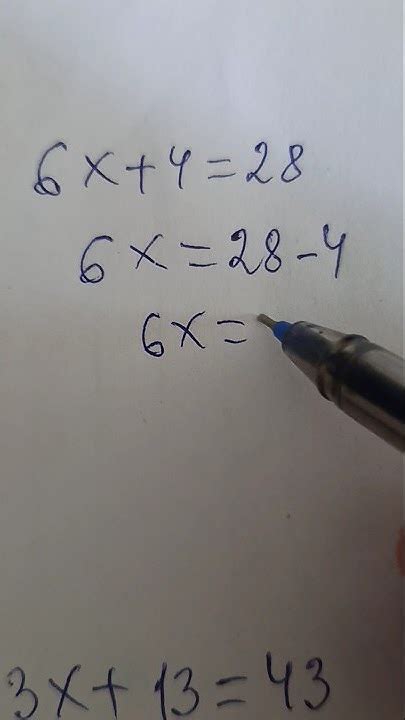 6x+4=28
6x=28-4
6x=
3x+13=43